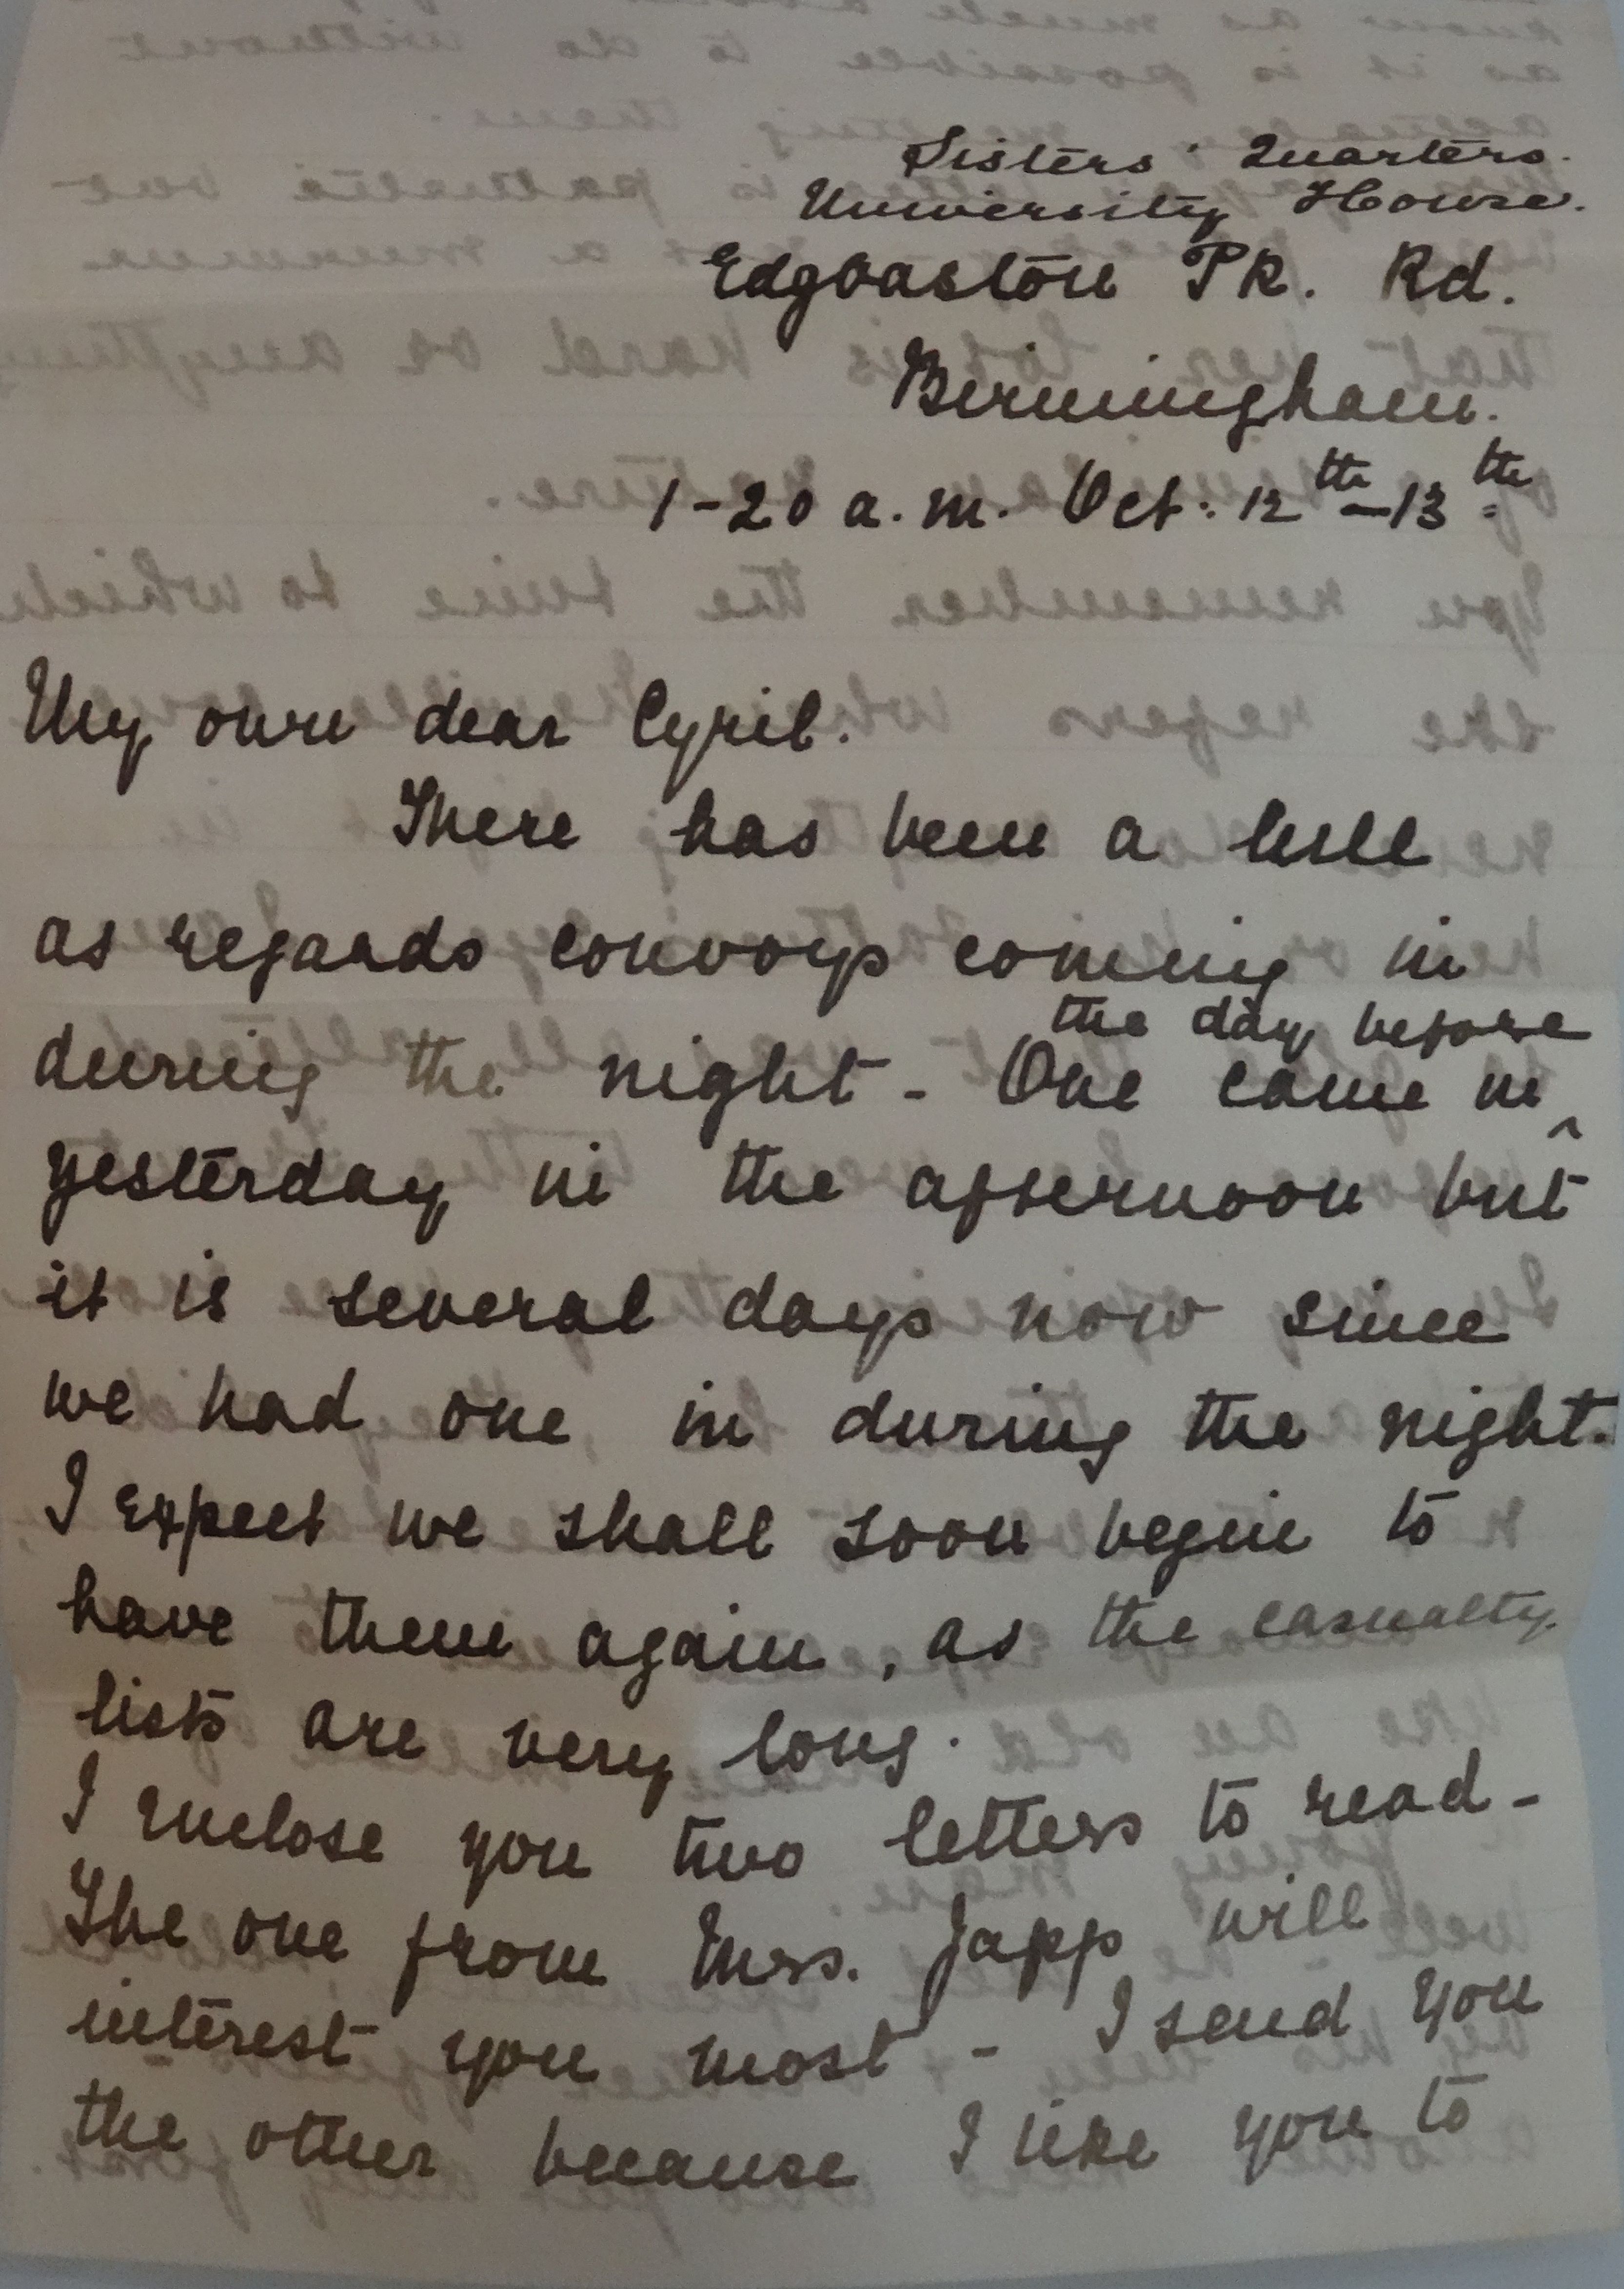 Sisters' Quarters.
University House.
Edgbaston PK. Rd.
Birmingham.
1-20 a.m. Oct: 12th-13th
My own dear Cyril.
There has been a lull
as regards convoys coming in
during the night - One came in
the day before
yesterday in the afternoon but
it is several days now since
we had one in during the night.
I expect we shall soon begin to
have them again, as the casualty
lists are very long.
I enclose you two letters to read -
The one from Mrs. Japp will
interest you most - I send you
the other because I like you to